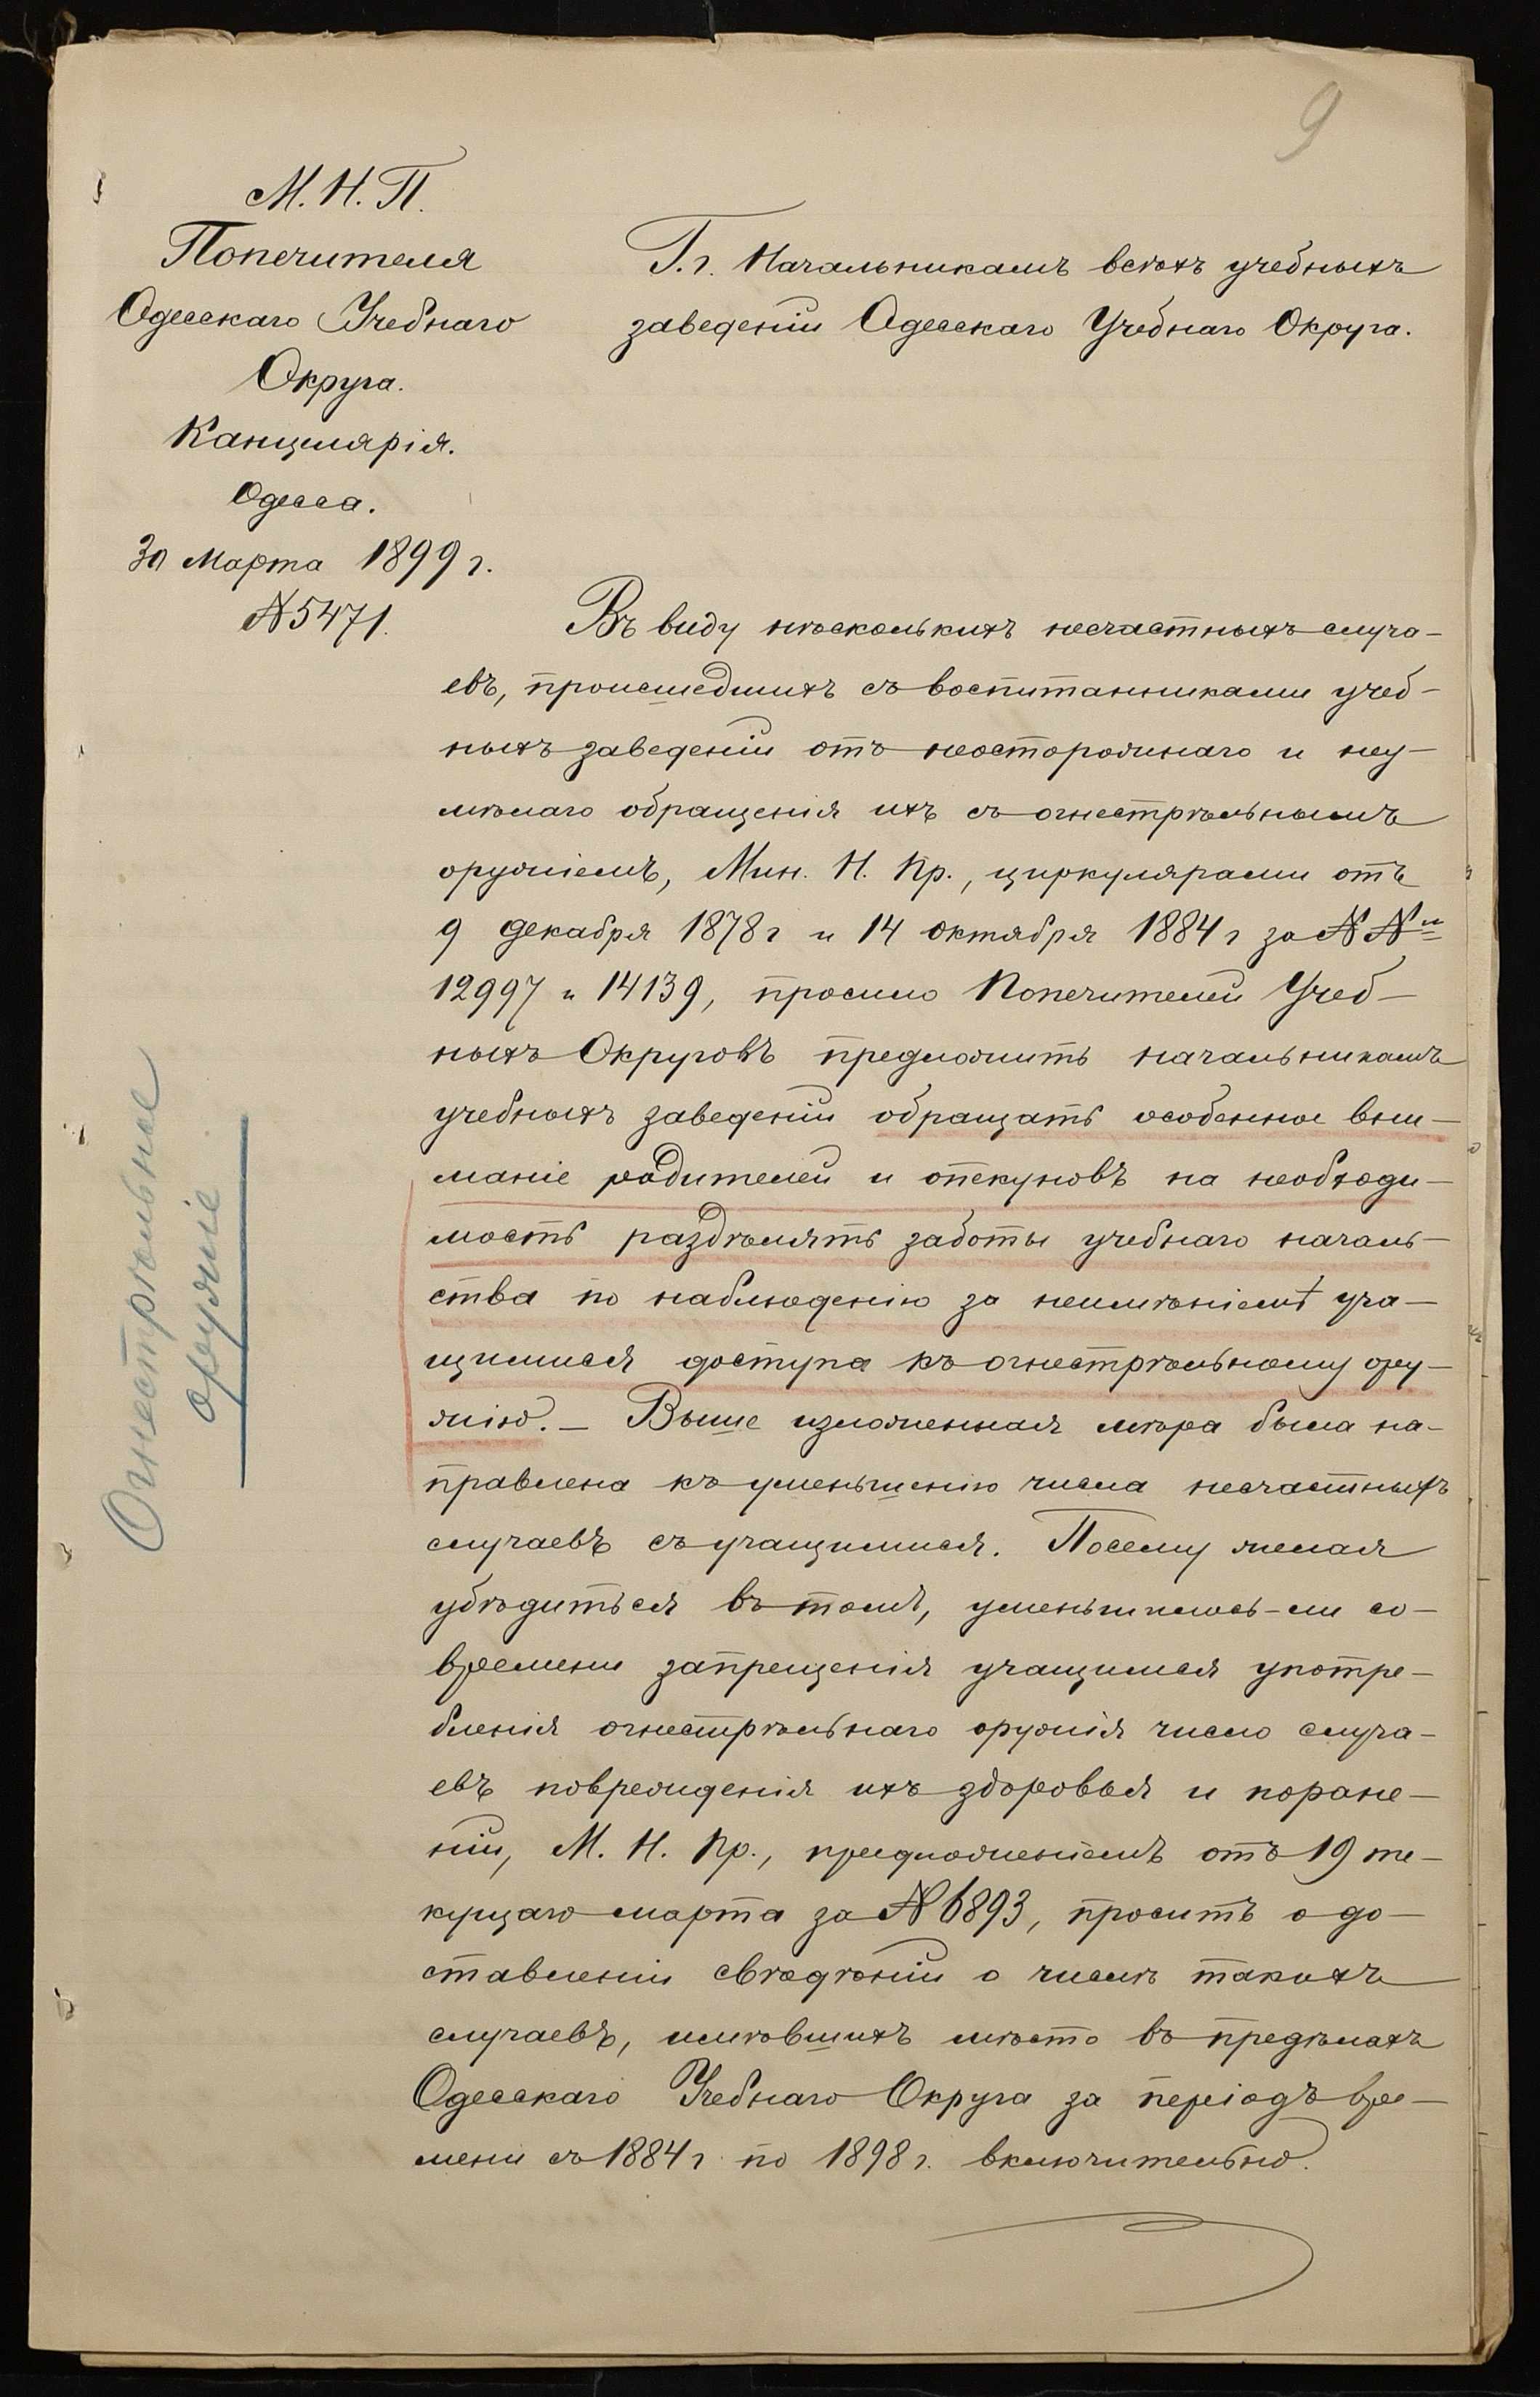 9
М. Н. П.
Попечителя
Одесскаго Учебнаго
Округа.
Канцелярія.
Одесса.
30 Марта 1899 г.
№ 5471.
Г.г. Начальникамъ всѣхъ учебныхъ
заведеній Одесскаго Учебнаго Округа.
Въ виду нѣсколькихъ несчастныхъ случа-
евъ, происшедшихъ съ воспитанниками учеб-
ныхъ заведеній отъ неосторожнаго и неу-
мѣлаго обращенія ихъ съ огнестрѣльнымъ
оружіемъ, Мин. Н. Пр., циркулярами отъ
9 декабря 1878 г и 14 октября 1884 г за №№ и
12997 и 14139, просило Попечителей Учеб-
ныхъ Округовъ предложить начальникамъ
учебныхъ заведеній обращать особенное вни-
маніе родителей и опекуновъ на необходи-
мость раздѣлять заботы учебнаго началь-
ства по наблюденію за неимѣніемъ уча-
щимися доступа къ огнестрѣльному ору-
жію. — Выше изложенная мѣра была на-
правлена къ уменьшенію числа несчастныхъ
случаевъ съ учащимися. Посему желая
убѣдиться въ томъ, уменьшилось-ли со-
времени запрещенія учащимся употре-
бленія огнестрѣльнаго оружія число случа-
евъ поврежденія ихъ здоровья и поране-
ній, М. Н. Пр., предложеніемъ отъ 19 те-
кущаго марта за № 6893, проситъ о до-
ставленіи свѣдѣній о числѣ такихъ
случаевъ, имѣвшихъ мѣсто въ предѣлахъ
Одесскаго Учебнаго Округа за періодъ вре-
мени съ 1884 г по 1898 г. включительно.
Огнестрѣльное
оружіе